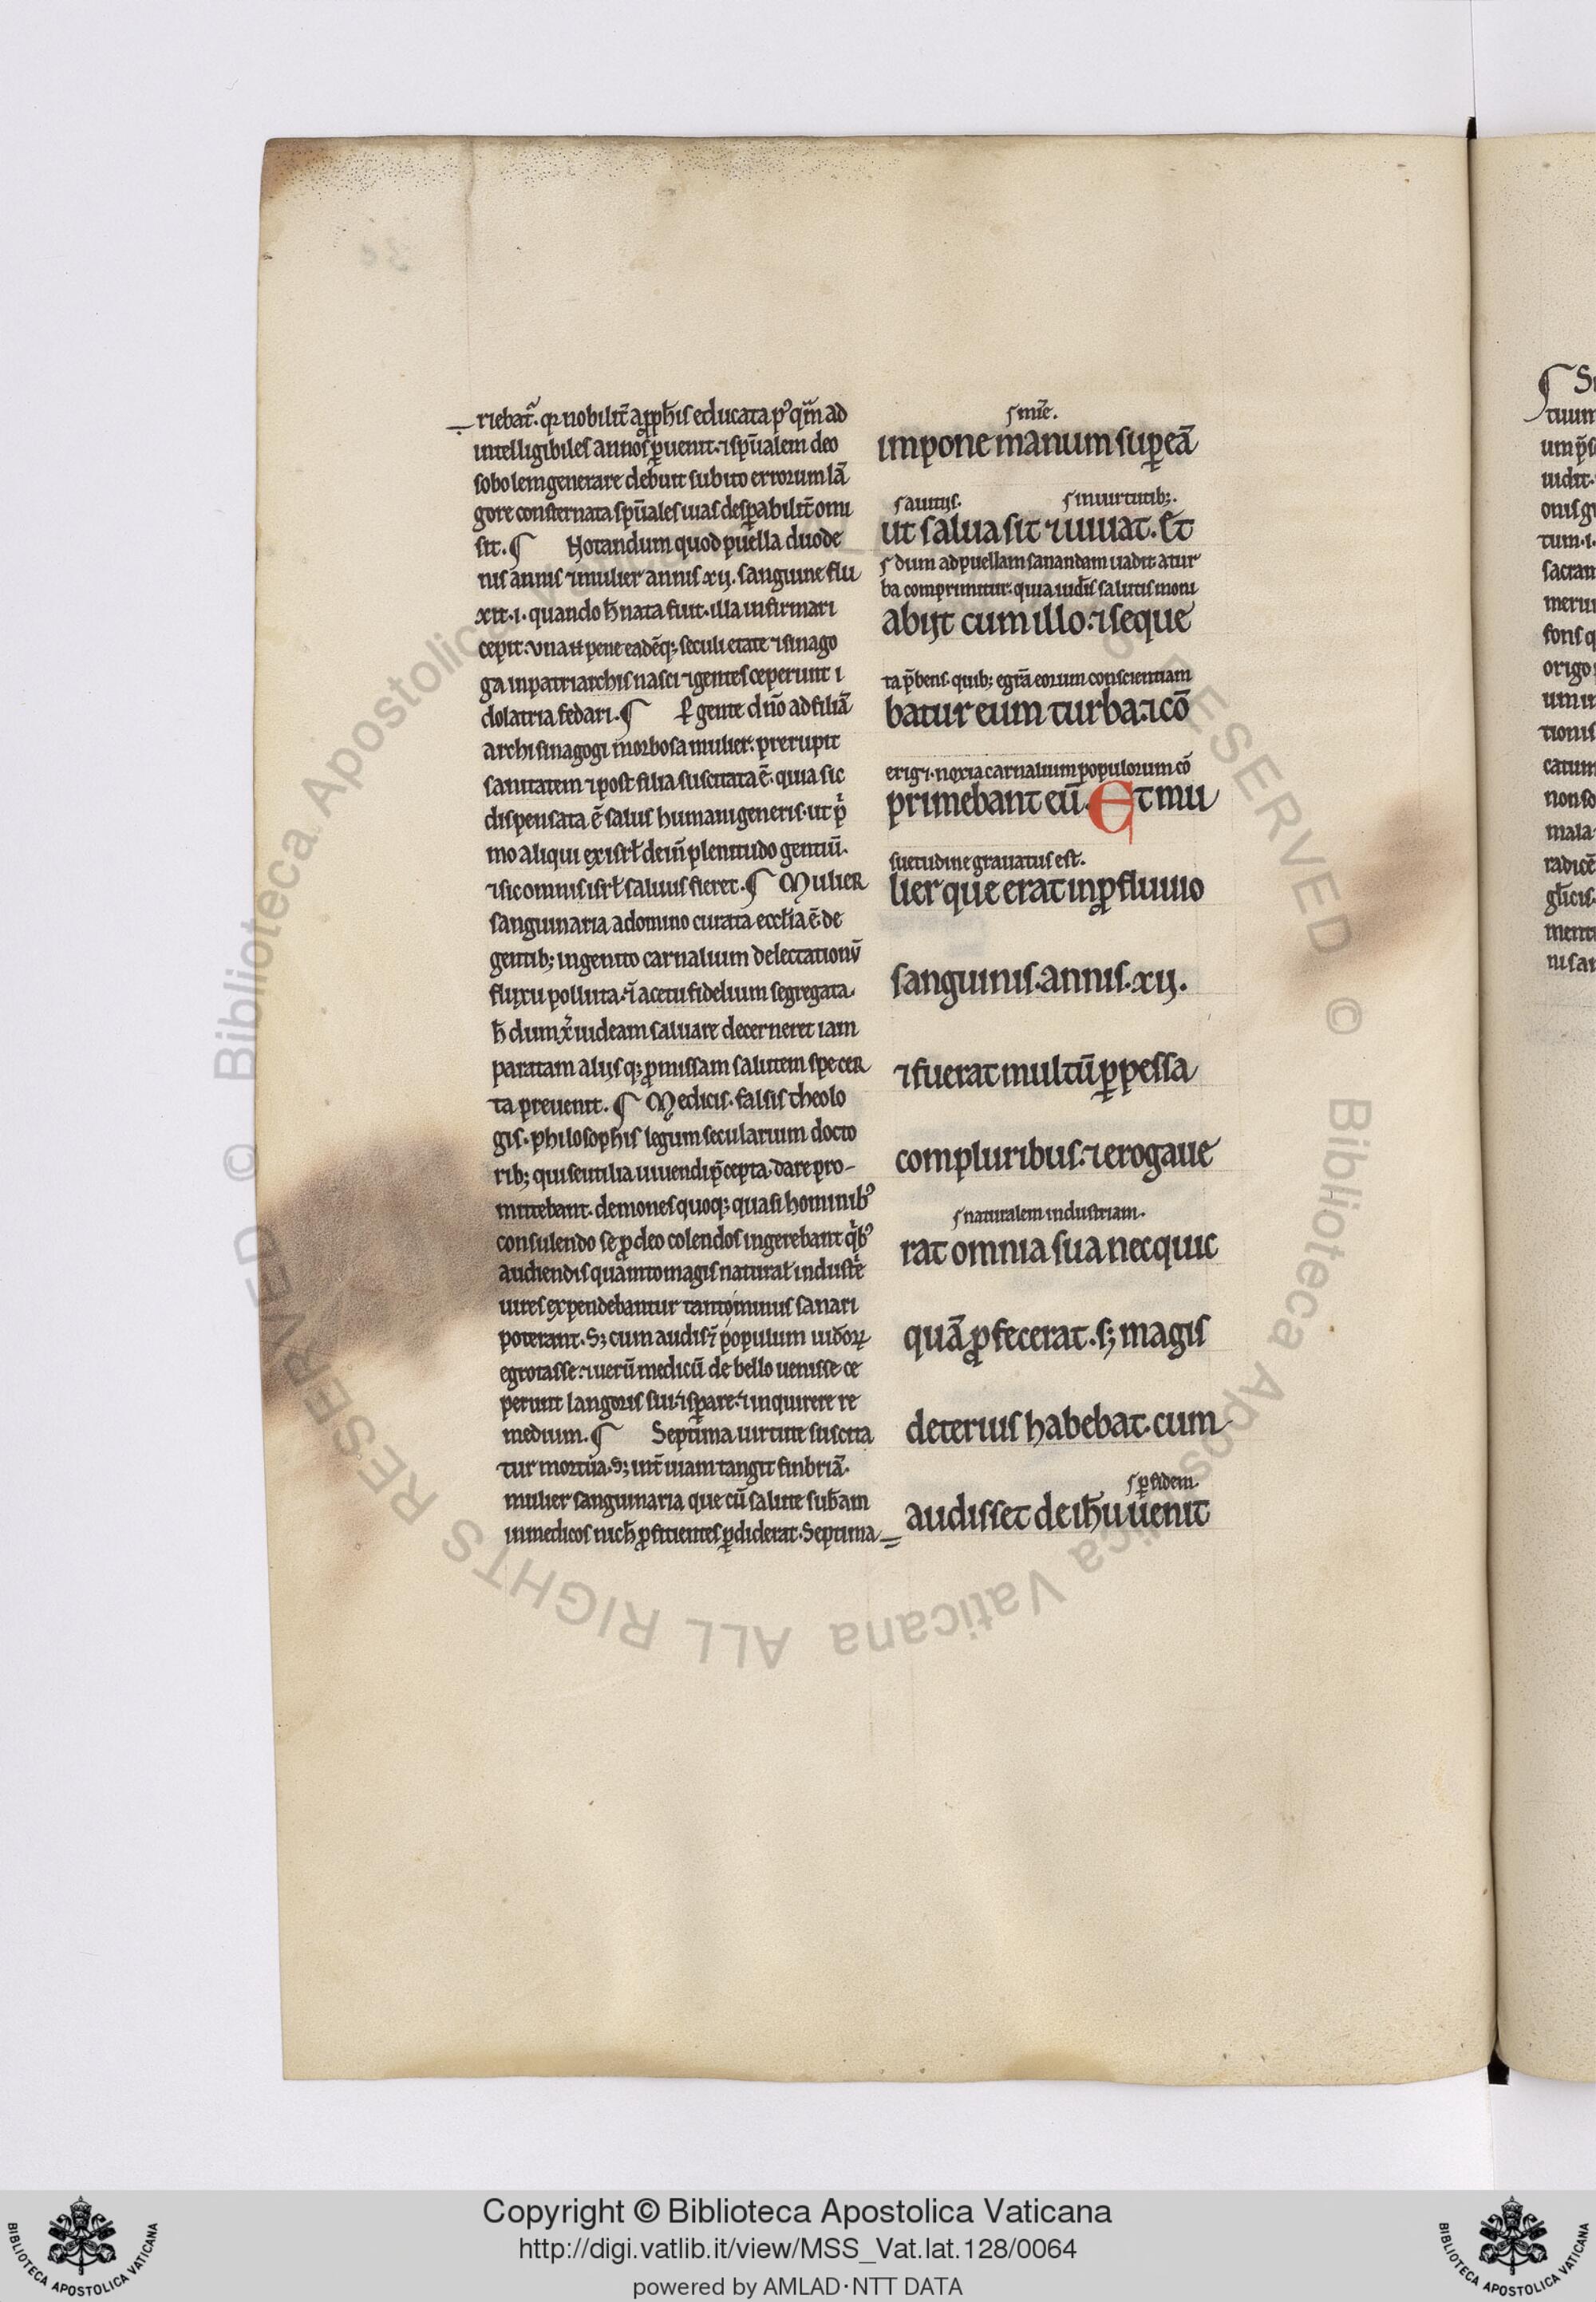 riebat᷒. qꝛ nobilit̄ a ꝓph̄is educata pꝰqᷓm ad
intelligibiles annos ꝑuenit. ⁊ sp̄ualem deo
sobolem generare debuit subito errorum lā
gore consternata sp̄uales uias desꝑabilit̄ omi
sit. ¶ Notandum quod puella duode
nis annis ⁊ mulier annis xij. sanguine flu
xit .i. quando h̄ nata fuit. illa infirmari
cepit. una .n. pene eadēq; seculi etate ⁊ sinago
ga in patriarchis nasci ⁊ gentes ceperunt i
dolatria fedari. ¶ Pergente dn̄o ad filiā
archisinagogi morbosa mulier. prerupit
sanitatem ⁊ post filia suscitata ē. quia sic
dispensata ē salus humani generis. ut pͥ
mo aliqui ex isrł dein̄ plenitudo gentiū.
⁊ sic omnis isrł saluus fieret. ¶ Mulier
sanguinaria a domino curata eccl̄ia ē de
gentib; ingenito carnalium delectationū
fluxu polluta. ⁊ a cetu fidelium segregata.
h̄ dum xͥ iudeam saluare decerneret iam
paratam alijsq; ꝓmissam salutem spe cer
ta preuenit. ¶ Medicis. falsis theolo
gis. philosophis legum secularium docto
rib; qui se utilia uiuendi p̄cepta. dare pro-
mittebant. demones quoq; quasi hominibꝰ
consulendo se ꝓ deo colendos ingerebant qͥbꝰ
audiendis quanto magis natural̄ industͥe
uires expendebantur tanto minus sanari
poterant. S; cum audis; populum iudoꝝ
egrotasse. ⁊ uerū medicū de bello uenisse ce
perunt langoris sui. ⁊ sꝑare. ⁊ inquirere re
medium. ¶ Septima uirtute suscita
tur mortua. S; int̄ uiam tangit finbriā.
mulier sanguinaria que cū salute sub̄am
in medicos nich̄ ꝓficientes ꝑdiderat. Septima
s mīe.
impone manum suꝑ eā
s a uitijs. s in uirtutib;.
ut salua sit ⁊ uiuat. Et
s dum ad puellam sanandam uadit a tur
ba comprimitur. quia iud̄is salutis moni
abijt cum illo. ⁊ seque
ta p̄bens. quib; egrā eorum conscientiam
batur eum turba. ⁊ cō
erig᷒. noxia carnalium populorum cō
primebant eū. Et mu
suetudine grauatus est.
lier que erat in ꝓfluuio
sanguinis. annis. xij.
⁊ fuerat multū ꝑpessa
compluribus. ⁊ erogaue
s naturalem industriam.
rat omnia sua nec quic
quā ꝓfecerat. s; magis
deterius habebat. cum
s ꝑ fidem.
audisset de ih̄u uenit
Copyright © Biblioteca Apostolica Vaticana
http://digi.vatlib.it/view/MSS_Vat.lat.128/0064
powered by AMLAD·NTT DATA